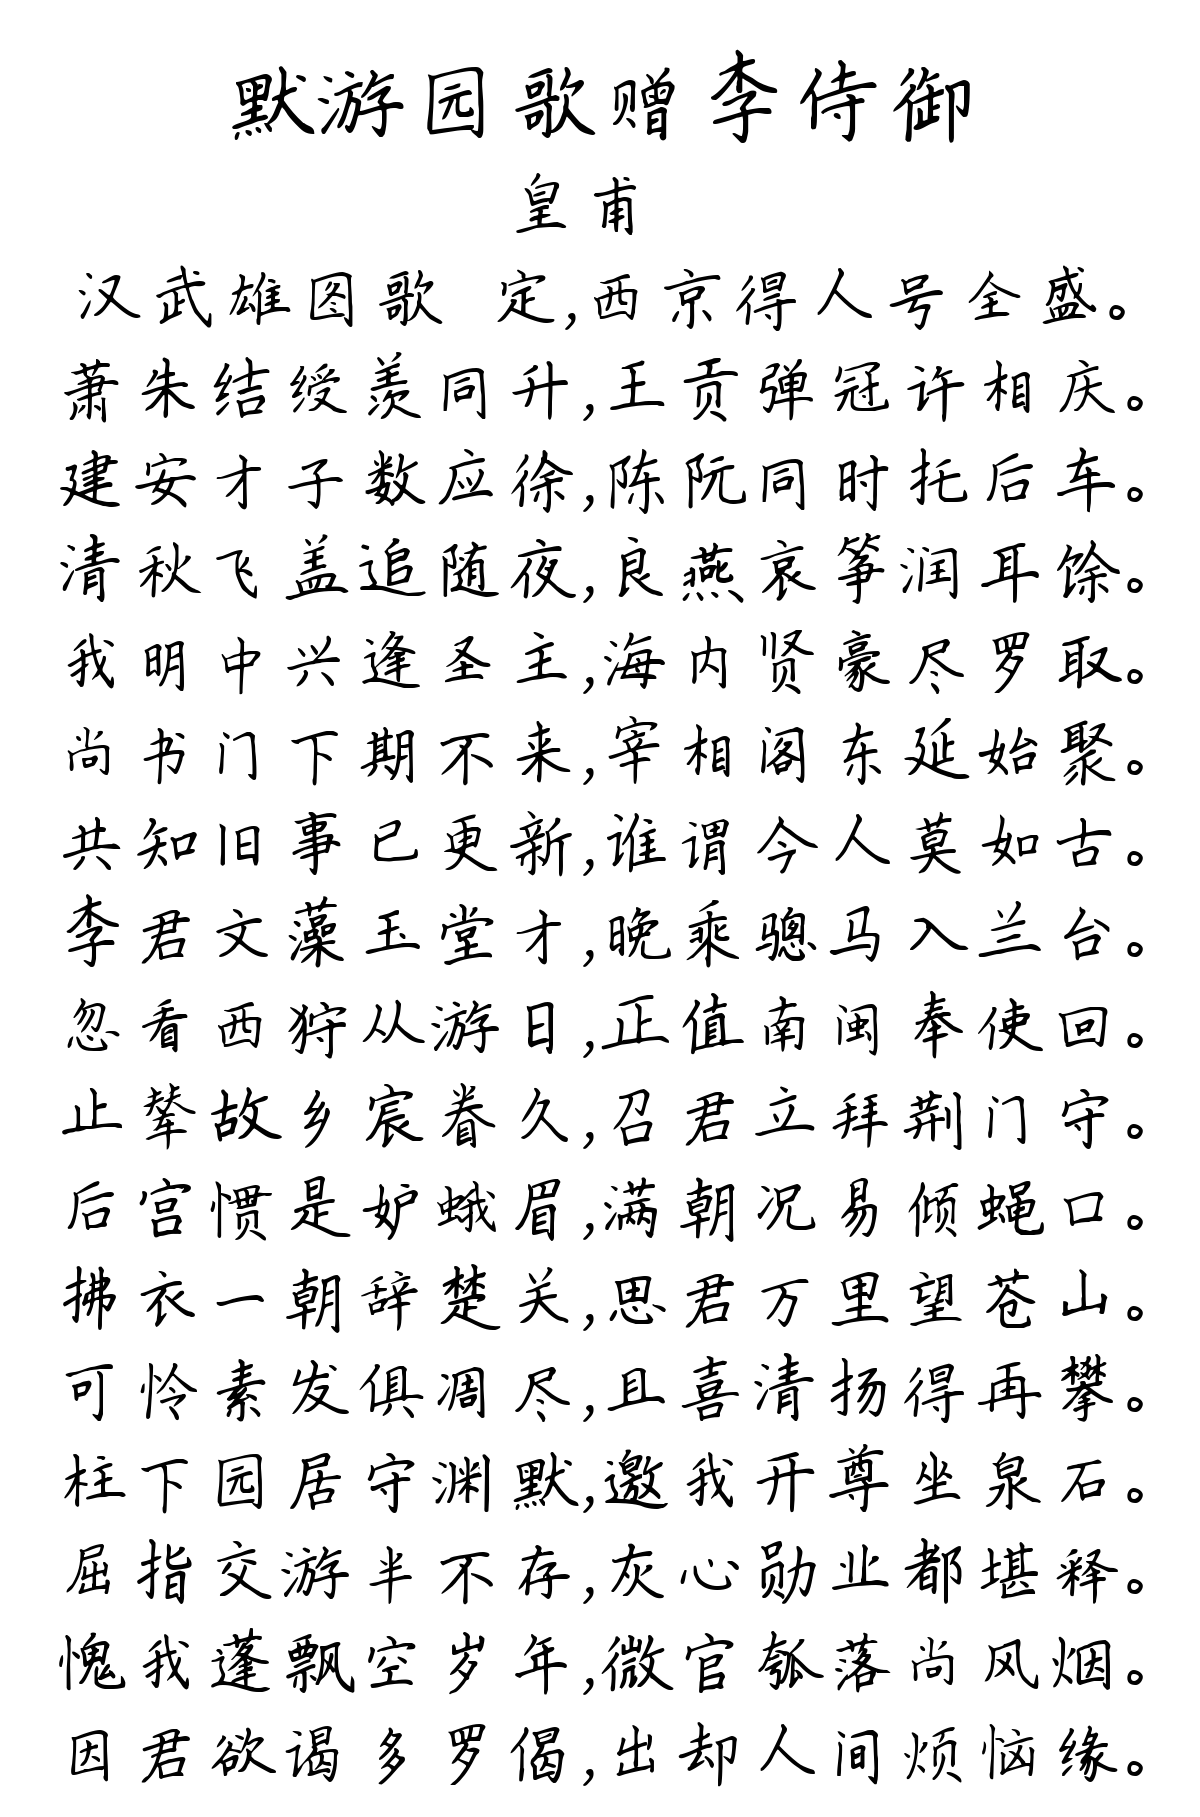 默游园歌赠李侍御
皇甫
汉武雄图歌 定,西京得人号全盛。
萧朱结绶羡同升,王贡弹冠许相庆。
建安才子数应徐,陈阮同时托后车。
清秋飞盖追随夜,良燕哀筝润耳馀。
我明中兴逢圣主,海内贤豪尽罗取。
尚书门下期不来,宰相阁东延始聚。
共知旧事已更新,谁谓今人莫如古。
李君文藻玉堂才,晚乘骢马入兰台。
忽看西狩从游日,正值南闽奉使回。
止辇故乡宸眷久,召君立拜荆门守。
后宫惯是妒蛾眉,满朝况易倾蝇口。
拂衣一朝辞楚关,思君万里望苍山。
可怜素发俱凋尽,且喜清扬得再攀。
柱下园居守渊默,邀我开尊坐泉石。
屈指交游半不存,灰心勋业都堪释。
愧我蓬飘空岁年,微官瓠落尚风烟。
因君欲谒多罗偈,出却人间烦恼缘。